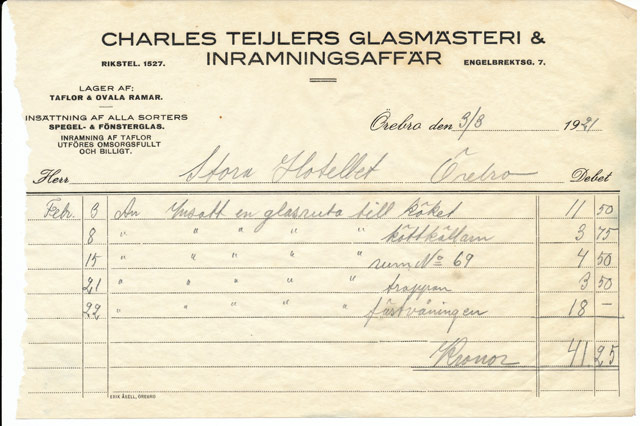 CHARLES TEIJLERS GLASMÄSTERI &
INRAMNINGSAFFÄR
RIKSTEL. 1527.
ENGELBREKTSG. 7.
LAGER AF:
TAFLOR & OVALA RAMAR.
INSÄTTNING AF ALLA SORTERS
SPEGEL- & FÖNSTERGLAS.
INRAMNING AF TAFLOR
UTFÖRES OMSORGSFULLT
OCH BILLIGT.
Örebro den 3/3 1921
Herr Stora Hotellet Örebro Debet
Febr. 3 An Insatt en glasruta till köket 11 50
8 " " " " " köttkällarn 3 75
15 " " " " " rum No 69 4 50
21 " " " " " trappan 3 50
22 " " " " " festvåningen 18 —
Kronor 41.25
ERIK ÅSELL, ÖREBRO